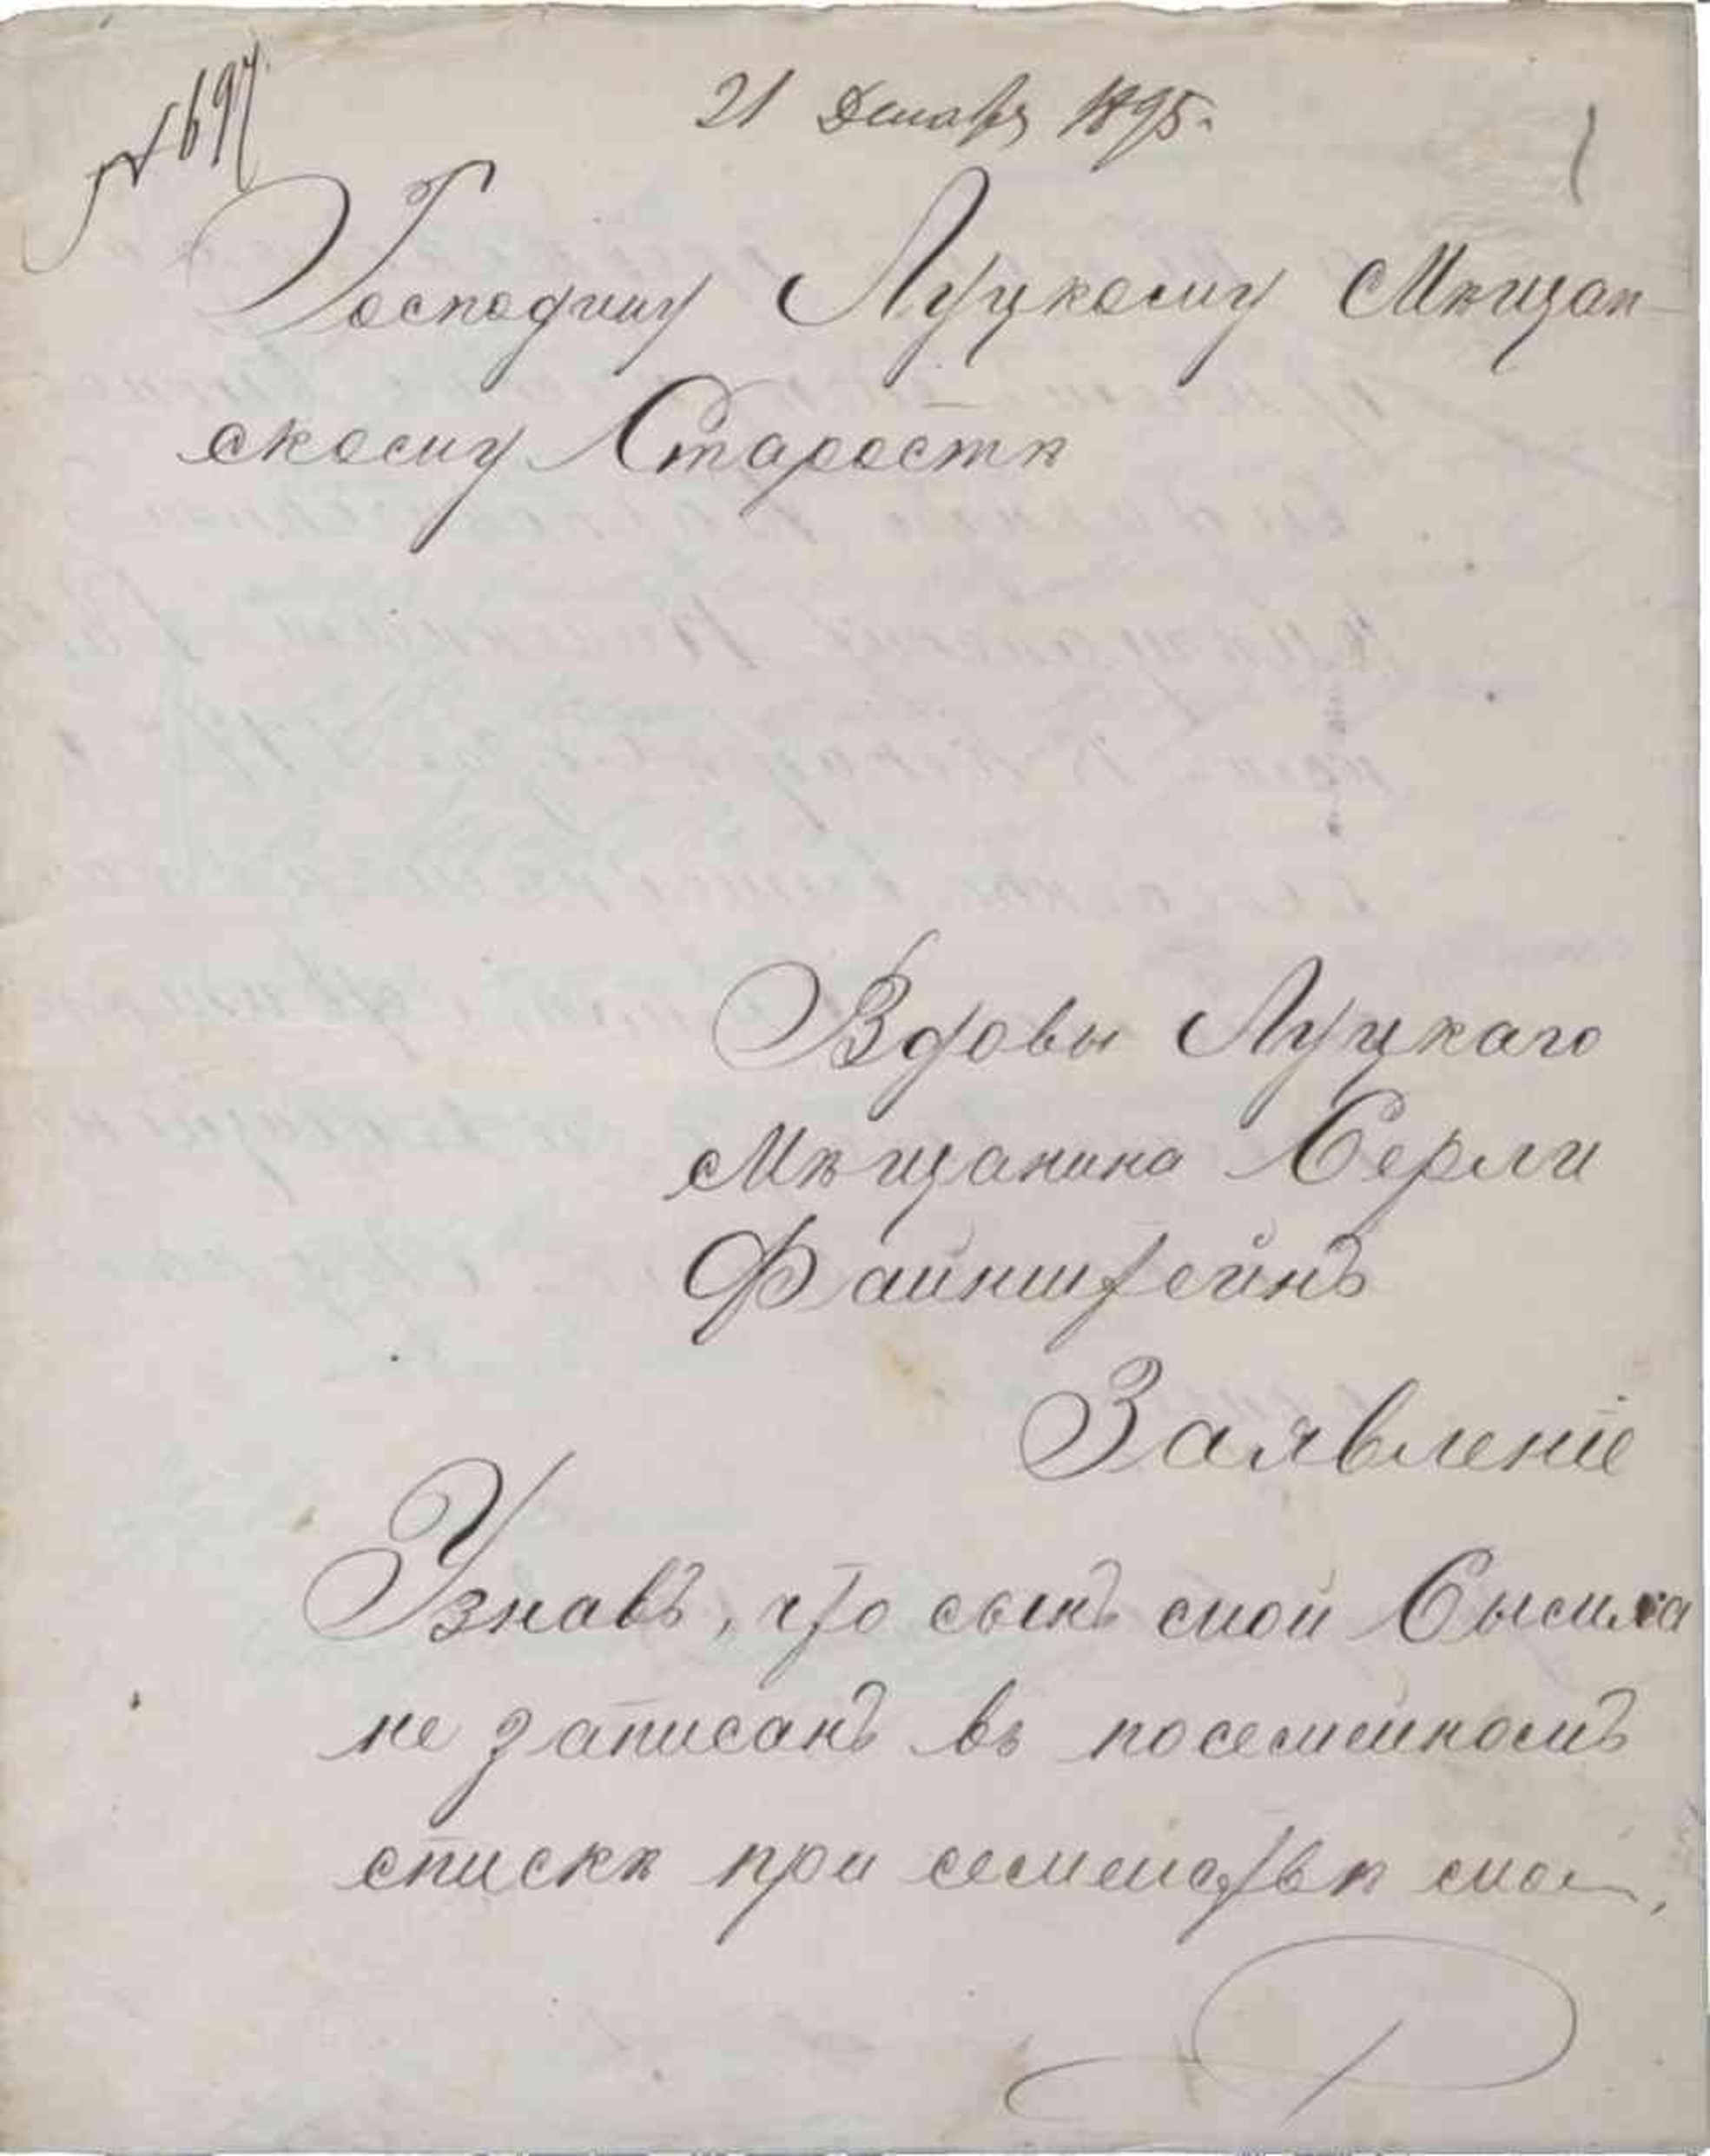 № 697
21 Декабря 1895.
Господину Луцкому Мѣщан-
скому Старостѣ
Вдовы Луцкаго
Мѣщанина Серли
Файнштейнъ
Заявленіе
Узнавъ, что сынъ мой
не записанъ въ посемейномъ
спискѣ при семействѣ моем,